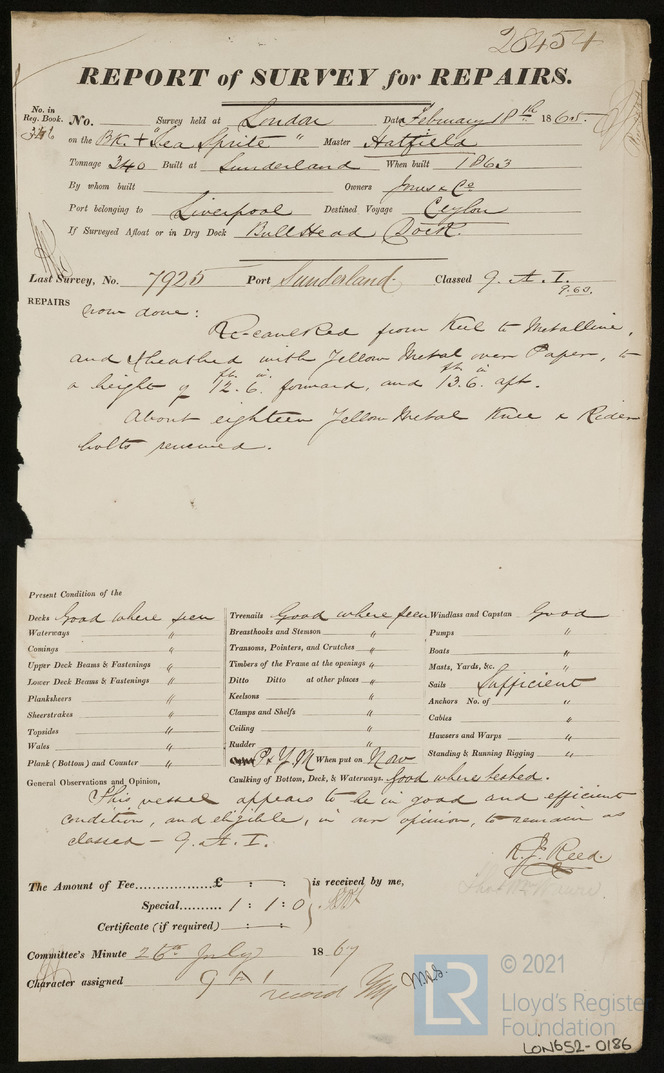 28454
REPORT of SURVEY for REPAIRS.
No. in Reg. Book.
No. Survey held at London Date February 18th 1865.
on the Bk. + "Sea Sprite" Master Hatfield
Tonnage 240 Built at Sunderland When built 1863
By whom built Owners Jones & Co
Port belonging to Liverpool Destined Voyage Ceylon
If Surveyed Afloat or in Dry Dock Bull Head Dock.
Last Survey, No. 7925 Port Sunderland Classed 9. A. I.
9.63.
REPAIRS now done:
Re-caulked from Keel to Metalline,
and sheathed with Yellow Metal over Paper, to
a height of 12ft. 6in. forward, and 13ft. 6in. aft.
About eighteen Yellow Metal Knee & Rider
bolts renewed.
Present Condition of the
Decks Good where seen
Waterways "
Comings "
Upper Deck Beams & Fastenings "
Lower Deck Beams & Fastenings "
Planksheers "
Sheerstrakes "
Topsides "
Wales "
Plank (Bottom) and Counter "
Treenails Good where seen
Breasthooks and Stemson "
Transoms, Pointers, and Crutches "
Timbers of the Frame at the openings "
Ditto Ditto at other places "
Keelsons "
Clamps and Shelfs "
Ceiling "
Rudder "
P & Y. M When put on Now
Caulking of Bottom, Deck, & Waterways. Good where tested.
Windlass and Capstan Good
Pumps "
Boats "
Masts, Yards, &c. "
Sails Sufficient
Anchors No. of "
Cables "
Hawsers and Warps "
Standing & Running Rigging "
General Observations and Opinion,
This vessel appears to be in good and efficient
condition, and eligible, in our opinion, to remain as
classed - 9. A. I.
R. J. Reed.
The Amount of Fee.................£ : : is received by me,
Special.......... 1 : 1 : 0
Certificate (if required) : :
Committee's Minute 26th July 1867
Character assigned 9 A 1
record
© 2021
LR
Lloyd's Register
Foundation
LON652-0186